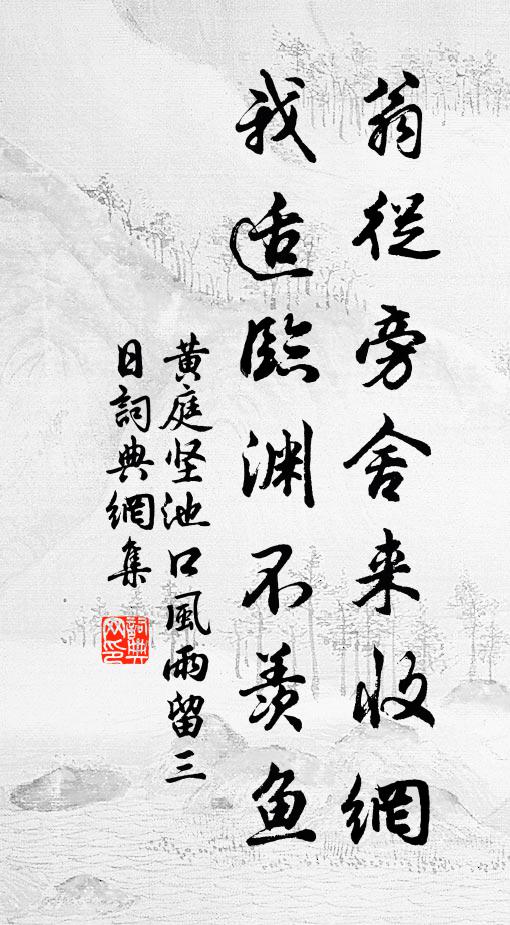 翁從旁舍来收網
我适臨渊不羨魚
黄庭坚池口風雨留三
日詞典網集
詞典網印